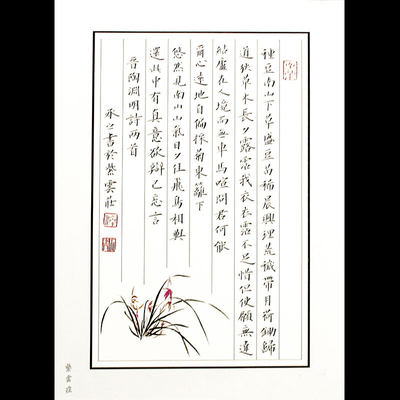 種豆南山下草盛豆苗稀晨興理荒穢帶月荷鋤歸
道狹草木長夕露霑我衣衣霑不足惜但使願無違
結廬在人境而無車馬喧問君何能
爾心遠地自偏採菊東籬下
悠然見南山山氣日夕佳飛鳥相與
還此中有真意欲辯已忘言
晉陶淵明詩兩首
承之書於紫雲莊
紫雲莊